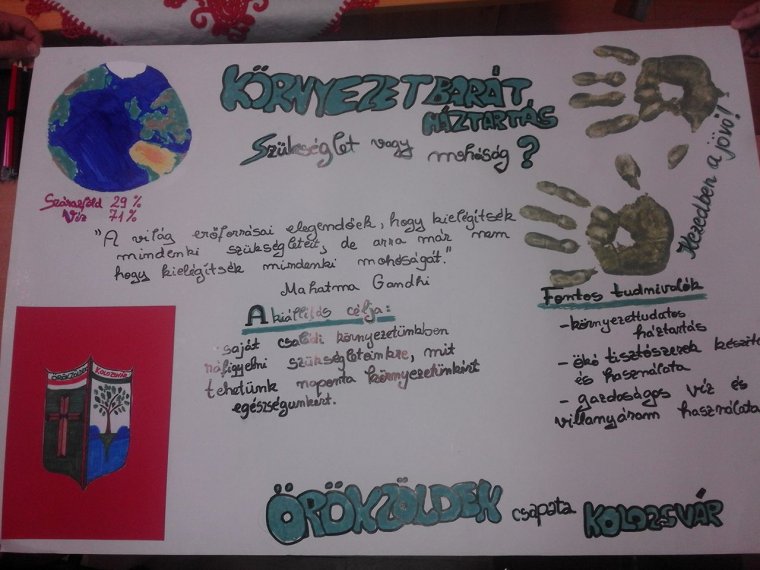 KÖRNYEZETBARÁT
HÁZTARTÁS
Szükséglet vagy mohóság?
Szárazföld 29 %
Víz 71 %
"A világ erőforrásai elegendőek, hogy kielégítsék
mindenki szükségleteit, de arra már nem
hogy kielégítsék mindenki mohóságát."
Mahatma Gandhi
Kezedben a jövő!
A kiállítás célja:
saját családi környezetünkben
ráfigyelni szükségleteinkre, mit
tehetünk naponta környezetünkért
egészségünkért.
Fontos tudnivalók
- környezettudatos
háztartás
- ökó tisztószerek készíté
és használata
- gazdaságos víz és
villanyáram használata
ÖRÖKZÖLDEK KOLOZSVÁR
ÖRÖKZÖLDEK csapata KOLOZSVÁR